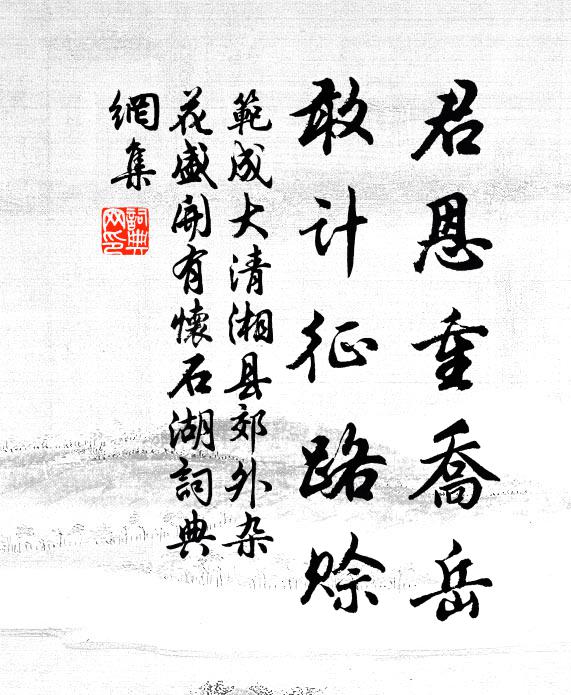 君恩重喬岳
敢计征路赊
範成大清湘县郊外杂
花盛開有懷石湖詞典
網集
詞典
网印